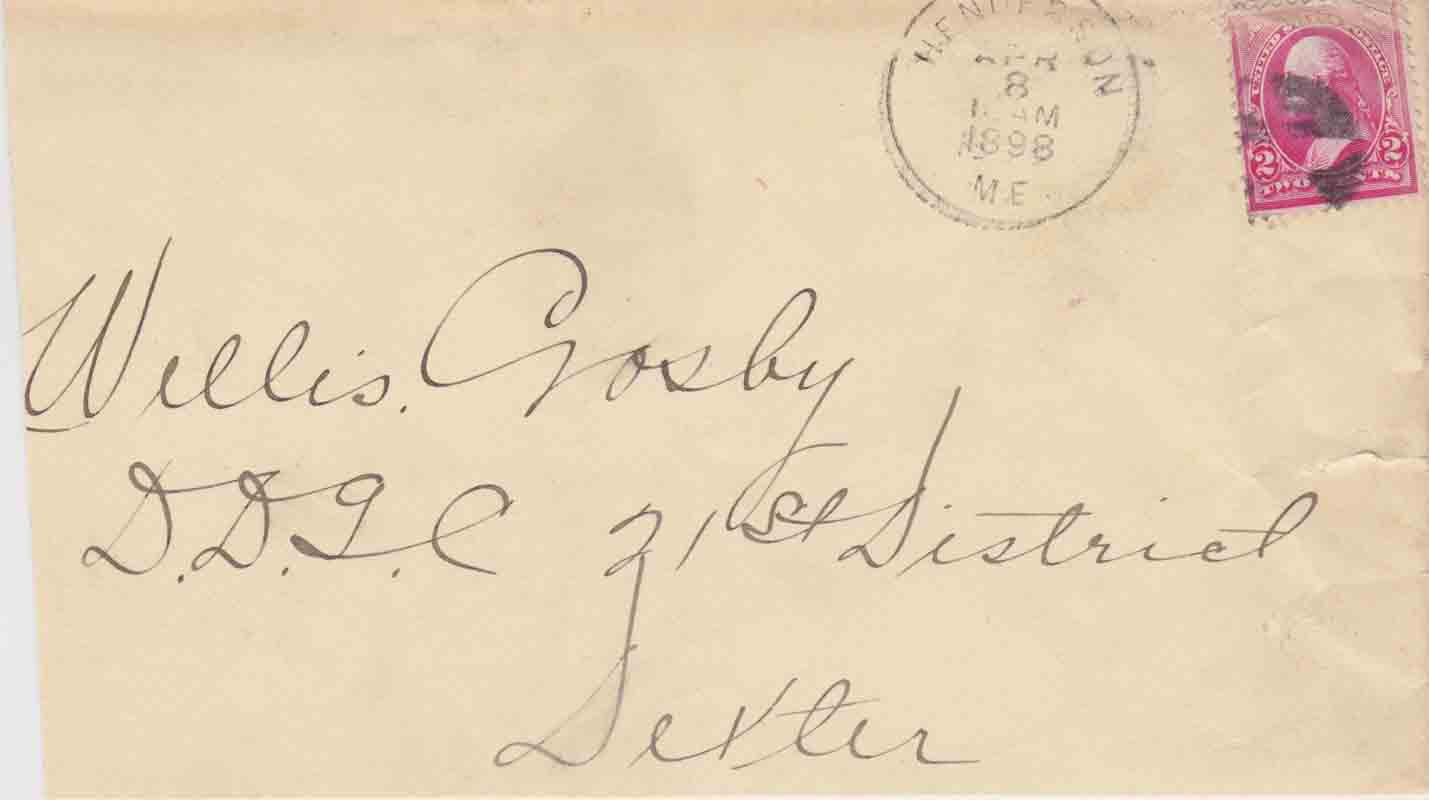 HENDERSON
APR
8
AM
1898
M.E.
UNITED STATES POSTAGE
2 2
TWO CENTS
Willis. Crosby
D.D.G.C 21st District
Dexter